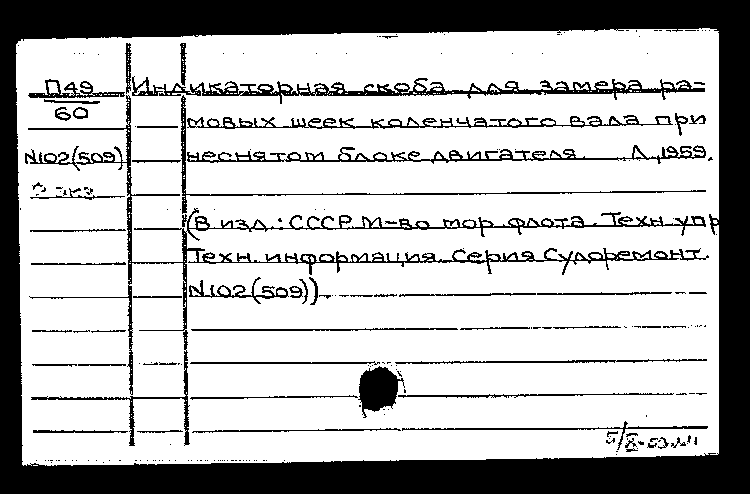 П49 Индикаторная скоба для замера ра-
60 мовых шеек коленчатого вала при
N102(509) неснятом блоке двигателя. Л.,1959.
экз
(В изд.: СССР. М-во мор. флота. Техн. упр
Техн. информация. Серия Судоремонт.
N102(509)).